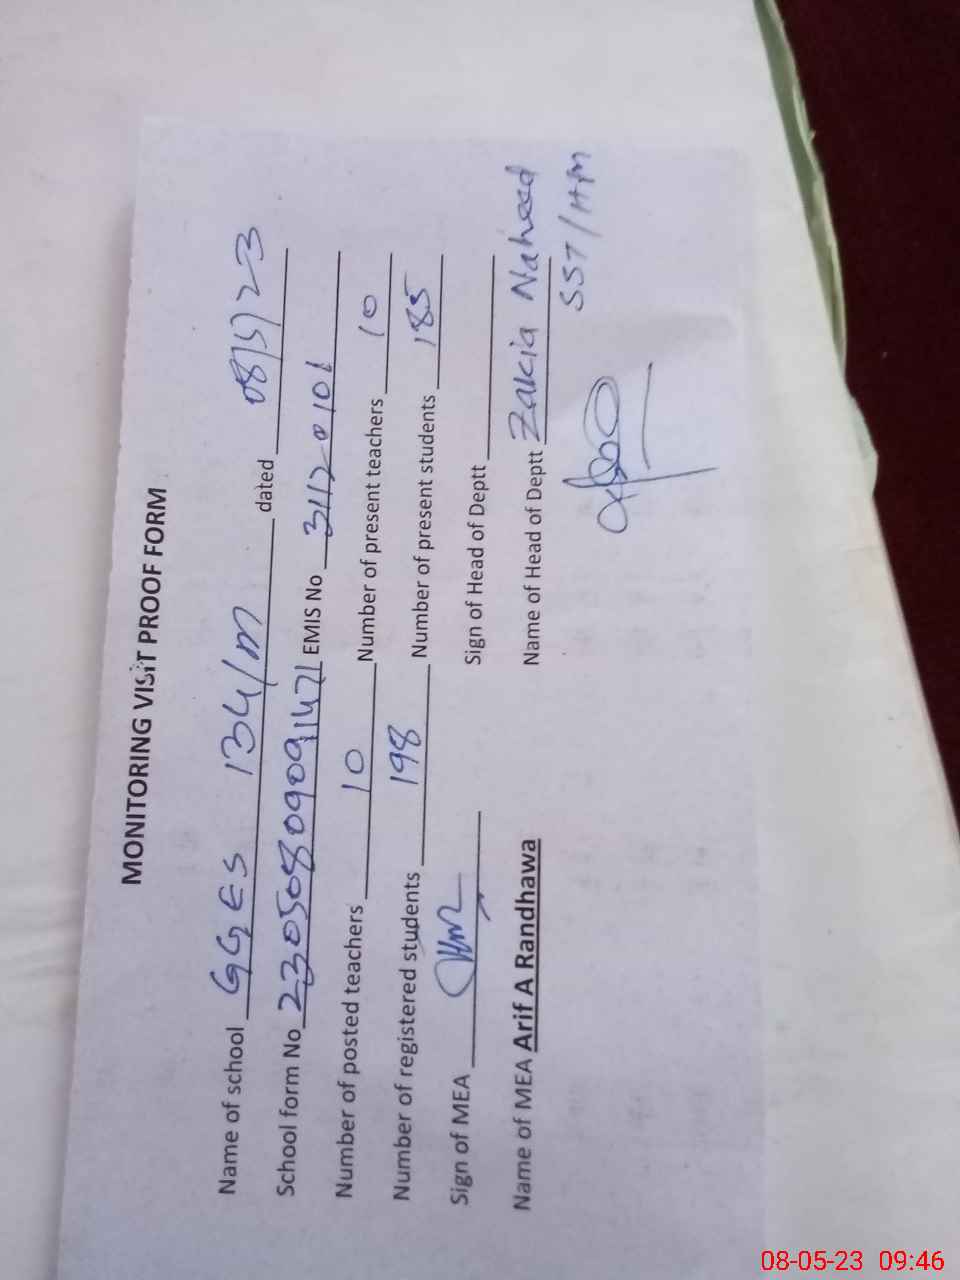 MONITORING VISIT PROOF FORM
Name of school GGES 134/m dated 08/5/23
School form No 23050809091471 EMIS No 31120101
Number of posted teachers 10 Number of present teachers 10
Number of registered students 198 Number of present students 185
Sign of MEA Sign of Head of Deptt
Name of MEA Arif A Randhawa Name of Head of Deptt Zakia Naheed
SST/HM
08-05-23 09:46